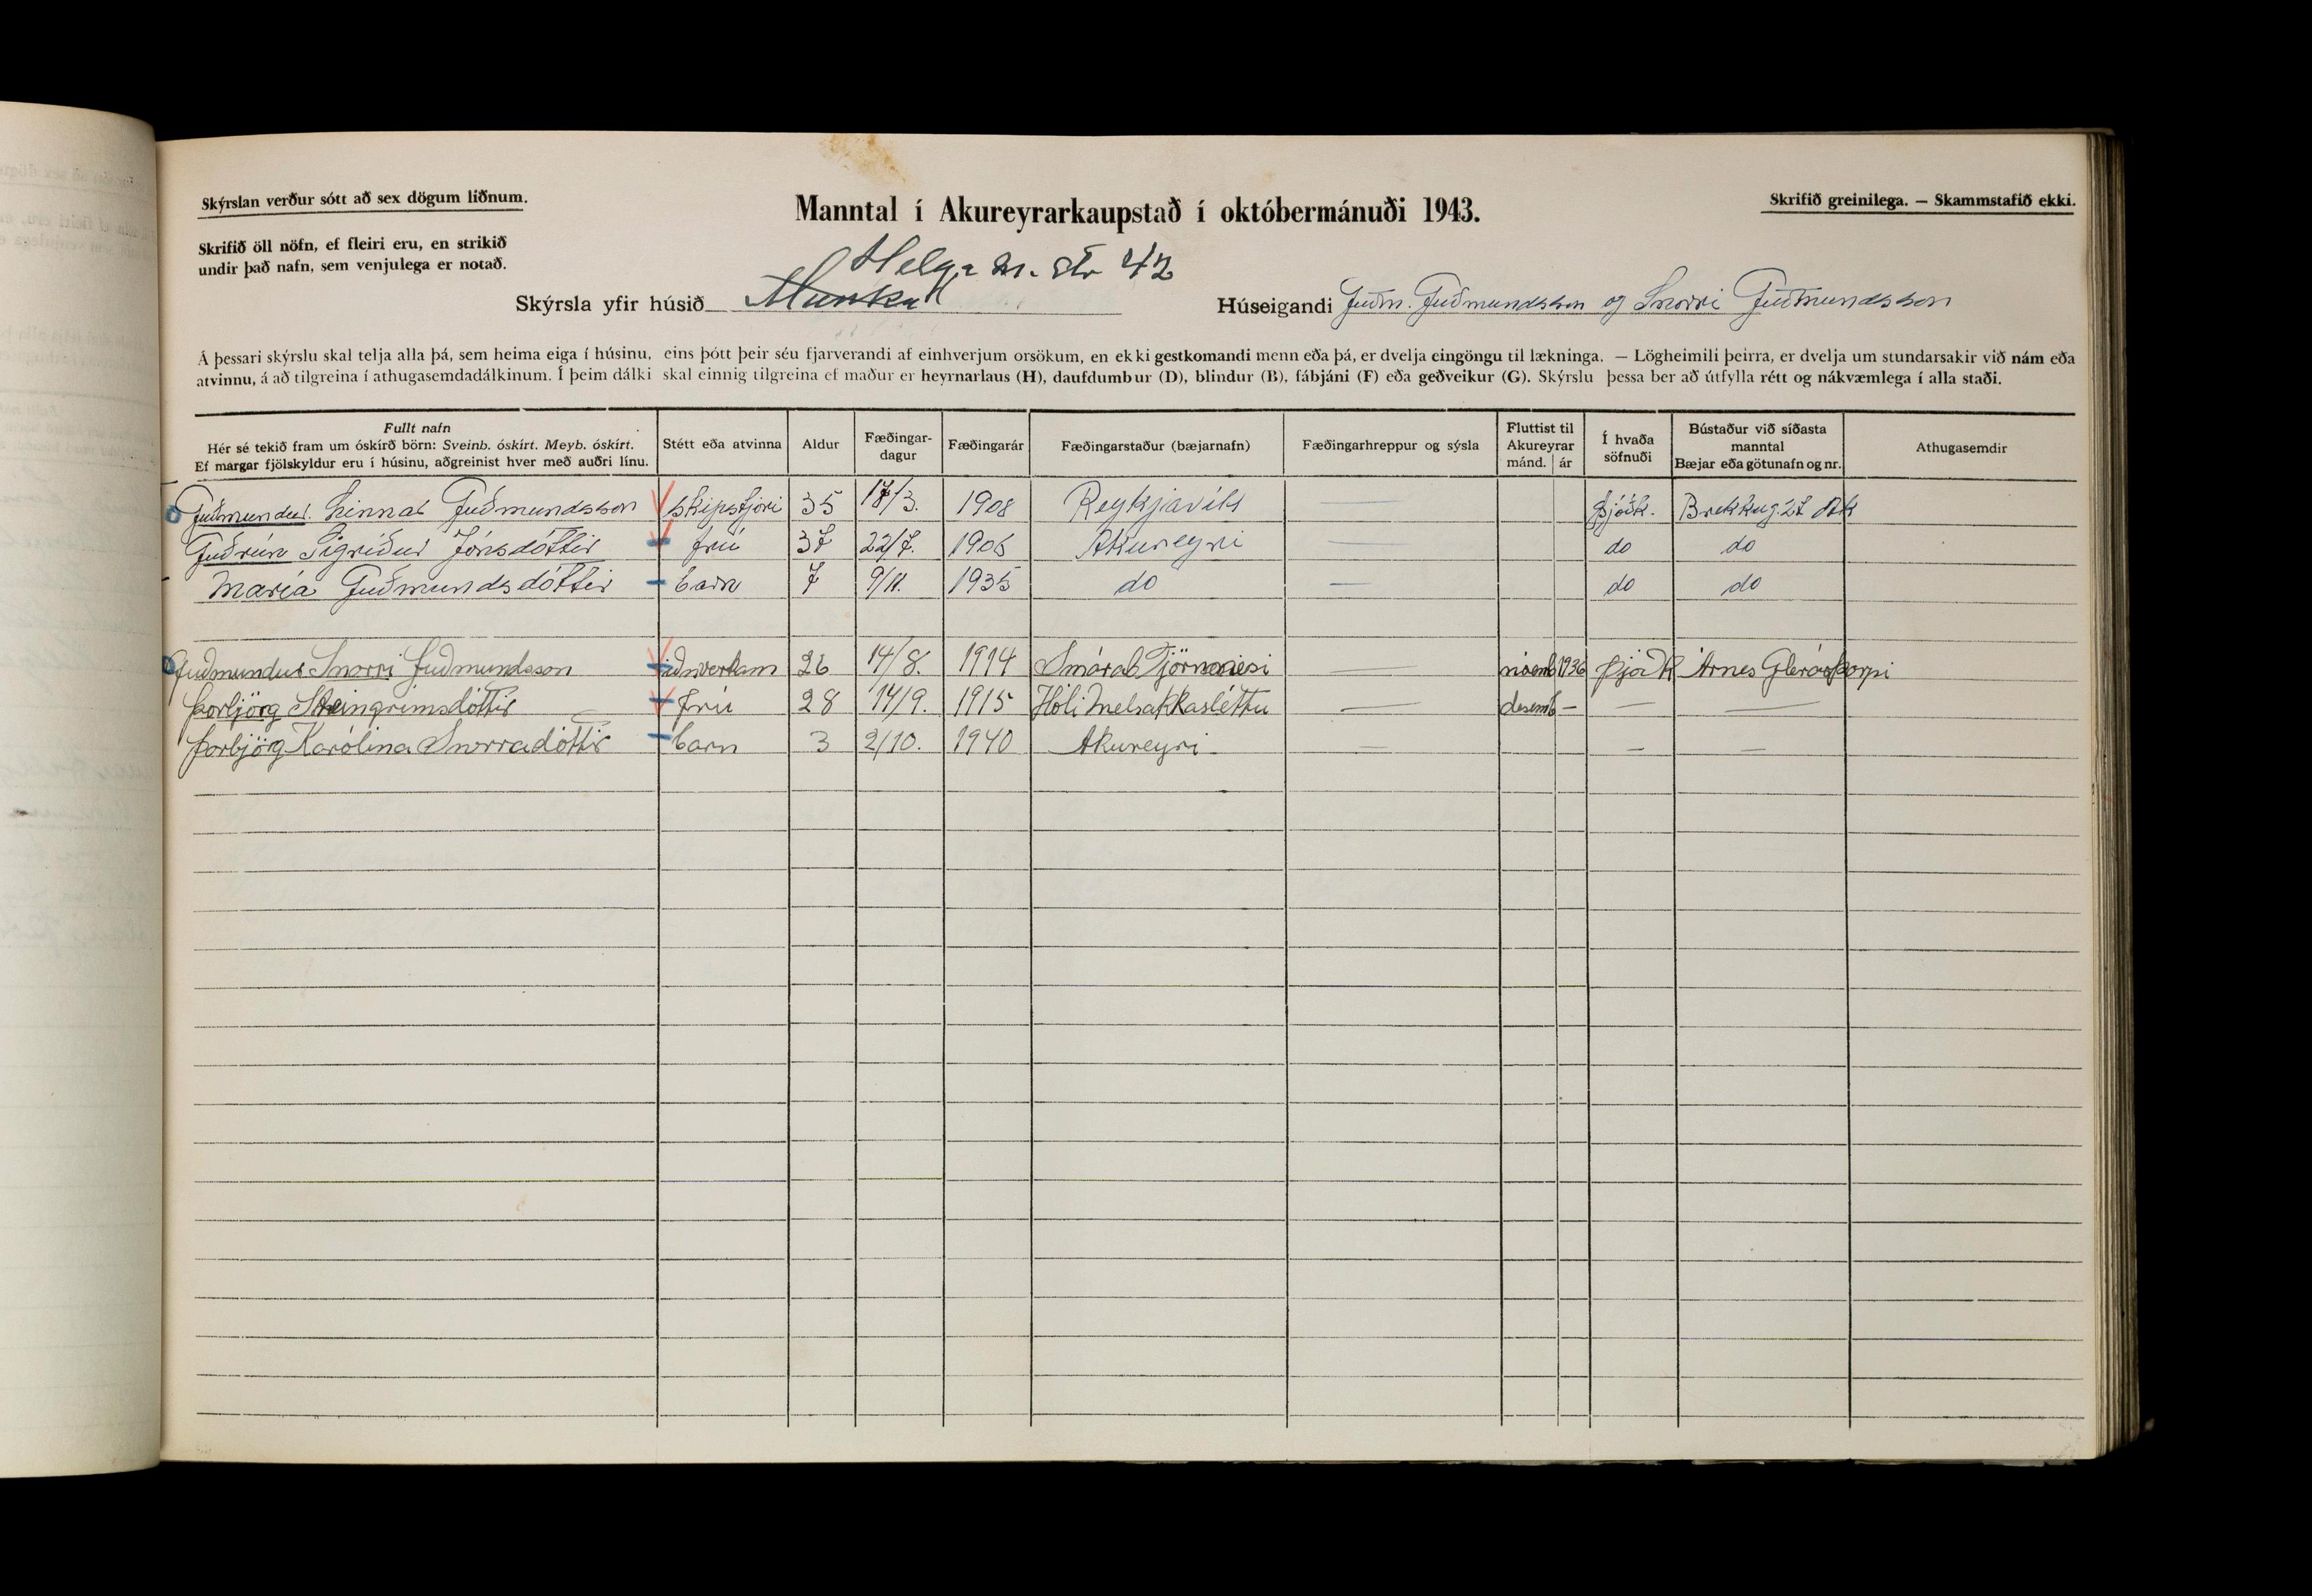 Skýrslan verður sótt að sex dögum liðnum.
Manntal í Akureyrarkaupstað í októbermánuði 1943.
Skrifið greinilega. — Skammstafið ekki.
Skrifið öll nöfn, ef fleiri eru, en strikið
undir það nafn, sem venjulega er notað.
Helga m. str 42
Skýrsla yfir húsið Munka
Húseigandi Guðm. Guðmundsson og Snorri Guðmundsson
Á þessari skýrslu skal telja alla þá, sem heima eiga í húsinu, eins þótt þeir séu fjarverandi af einhverjum orsökum, en ekki gestkomandi menn eða þá, er dvelja eingöngu til lækninga. — Lögheimili þeirra, er dvelja um stundarsakir við nám eða
atvinnu, á að tilgreina í athugasemdadálkinum. Í þeim dálki skal einnig tilgreina ef maður er heyrnarlaus (H), daufdumbur (D), blindur (B), fábjáni (F) eða geðveikur (G). Skýrslu þessa ber að útfylla rétt og nákvæmlega í alla staði.
Fullt nafn
Hér sé tekið fram um óskírð börn: Sveinb. óskírt. Meyb. óskírt.
Ef margar fjölskyldur eru í húsinu, aðgreinist hver með auðri línu.
Stétt eða atvinna
Aldur
Fæðingar-
dagur
Fæðingarár
Fæðingarstaður (bæjarnafn)
Fæðingarhreppur og sýsla
Fluttist til
Akureyrar
mánd. ár
Í hvaða
söfnuði
Bústaður við síðasta
manntal
Bæjar eða götunafn og nr.
Athugasemdir
Guðmundur Guðmundsson skipstjóri 35 17/3. 1908 Reykjavík — þjóðk. Brekkug. 27 Ak
Guðrún Sigríður Jónsdóttir frú 37 22/7. 1906 Akureyri — do do
María Guðmundsdóttir barn 7 9/11. 1935 do — do do
Guðmundur Snorri Guðmundsson iðnverkam 26 14/8. 1914 Tjörnesi — nóvemb 1936 þjóðk Árnes Glerárþorpi
Þorbjörg Steingrímsdóttir frú 28 14/9. 1915 Hóli Melrakkasléttu — desemb — — —
Þorbjörg Karólína Snorradóttir barn 3 2/10. 1940 Akureyri — — —